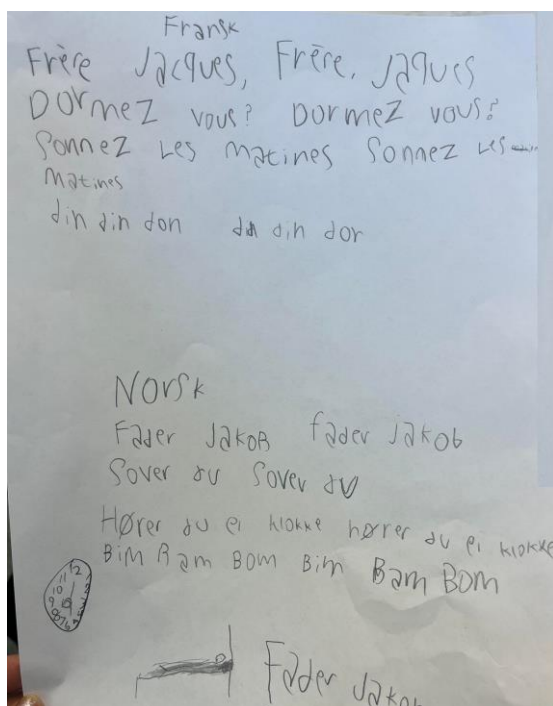 Fransk
Frère Jacques, Frère, Jaques
Dormez vous? Dormez vous?
Sonnez Les matines Sonnez Les
Matines
din din don din din dor
Norsk
Fader Jakob fader Jakob
Sover du Sover du
Hører du ei klokke hører du ei klokke
Bim Bam Bom Bim Bam Bom
Fader Jakob